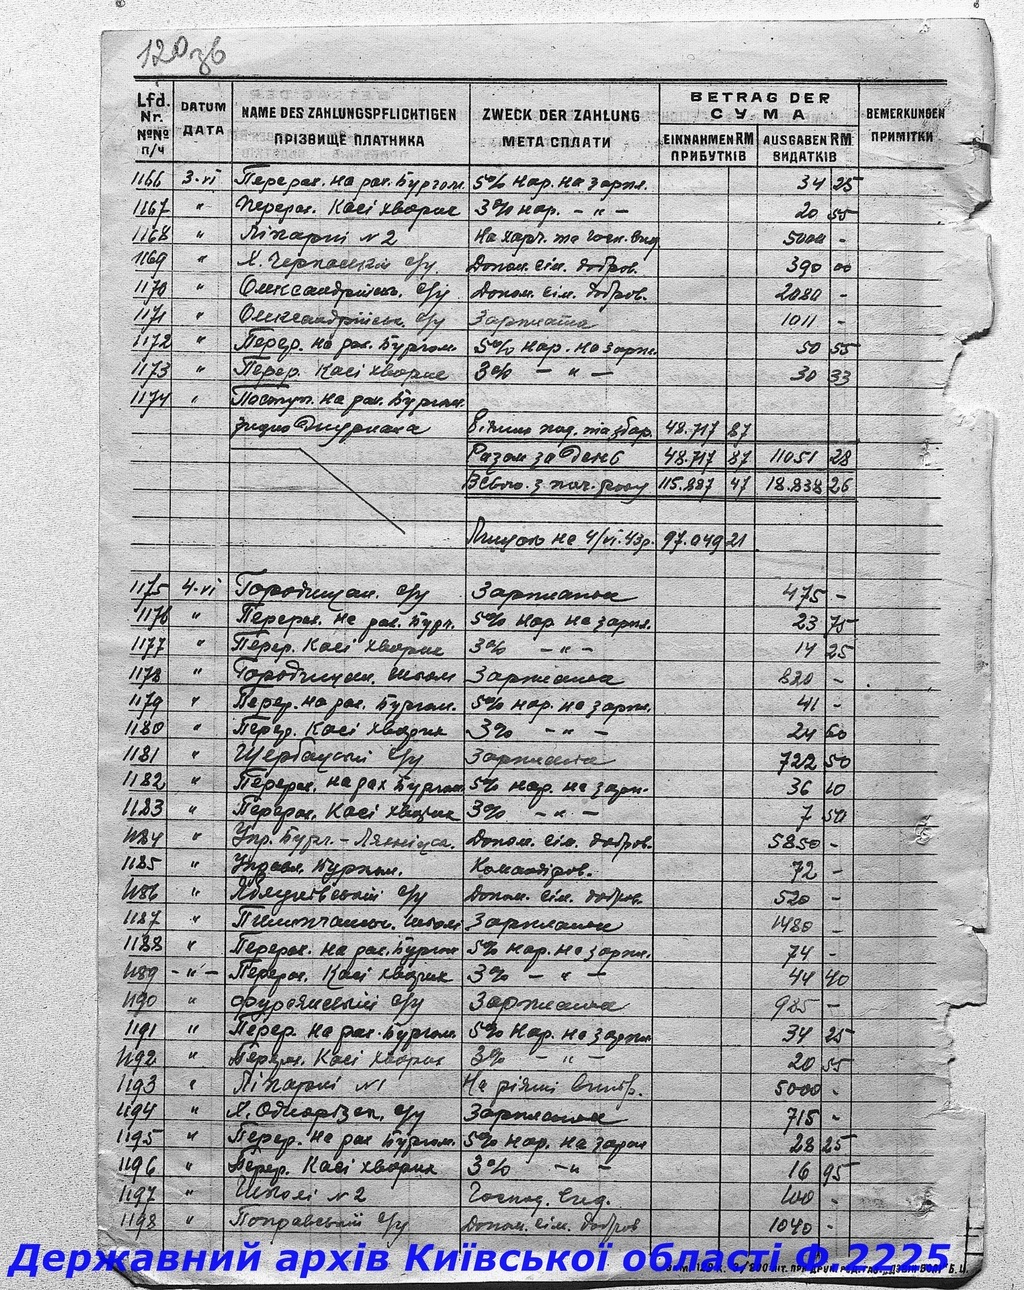 120зв
Lfd. Nr. №№ п/ч DATUM ДАТА NAME DES ZAHLUNGSPFLICHTIGEN ПРІЗВИЩЕ ПЛАТНИКА ZWECK DER ZAHLUNG МЕТА СПЛАТИ BETRAG DER СУМА EINNAHMEN RM ПРИБУТКІВ AUSGABEN RM ВИДАТКІВ BEMERKUNGEN ПРИМІТКИ
1166 3-VI Перерах. на рах. Бургом. 5% нар. на зарпл. 34 25
1167 " Перерах. Касі хворих 3% нар. - " - 20 55
1168 " Лікарні № 2 На харч. та госп. вид. 5000 -
1169 " Допом. сім. добров. 390 00
1170 " Олександрійськ. с/у Допом. сім. добров. 2080 -
1171 " Олександрійськ. с/у Зарплата 1011 -
1172 " Перер. на рах. Бургом. 5% нар. на зарпл. 50 55
1173 " Перер. Касі хворих 3% - " - 30 33
1174 " Поступ. на рах. Бургом.
згідно податк. та збор. 48.717 87
Разом за день 48.717 87 11051 28
Всього з поч. року 115.887 47 18.838 26
Лишок на 4/VI.43р. 97.049 21
1175 4-VI с/у Зарплата 475 -
1176 " Перерах. на рах. Бург. 5% нар. на зарпл. 23 75
1177 " Перер. Касі хворих 3% - " - 14 25
1178 " Зарплата 820 -
1179 " Перер. на рах. Бургом. 5% нар. на зарпл. 41 -
1180 " Перер. Касі хворих 3% - " - 24 60
1181 " Щербацькій с/у Зарплата 722 50
1182 " Перерах. на рах Бургом 5% нар. на зарп. 36 10
1183 " Перерах. Касі хворих 3% - " - 7 50
1184 " Упр. Бург. - Допом. сім. добров. 5850 -
1185 " Управ. Бургом. Командіров. 72 -
1186 " с/у Допом. сім. добров. 520 -
1187 " Зарплата 1480 -
1188 " Перерах. на рах. Бургом 5% нар. на зарпл. 74 -
1189 - " - Перерах. Касі хворих 3% - " - 44 40
1190 " Фурсянській с/у Зарплата 925 -
1191 " Перер. на рах. Бургом. 5% нар. на зарпл. 34 25
1192 " Перерах. Касі хворих 3% - " - 20 55
1193 " Лікарні №1 На різні 5000 -
1194 " с/у Зарплата 715 -
1195 " Перер. на рах Бургом. 5% нар. на зарпл 28 25
1196 " Перер. Касі хворих 3% - " - 16 95
1197 " Школі № 2 Господ. вид. 100 -
1198 " Поправській с/у Допом. сім. добров 1040 -
Державний архів Київської області Ф.2225